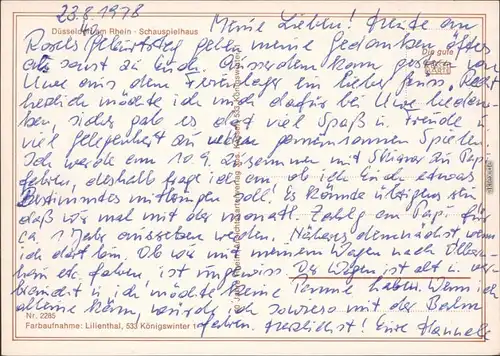 23.8.1978
Düsseldorf am Rhein - Schauspielhaus
Meine Lieben! Heute an
Rosels Geburtstag gehen meine Gedanken öfter
als sonst zu Euch. Ausserdem kam gestern von
Uwe aus dem Ferienlager ein lieber Gruss. Recht
herzlich möchte ich mich dafür bei Uwe bedan-
ken, sicher gab es dort viel Spaß u. Freude u
viel Gelegenheit zu gemeinsamen Spielen.
Ich werde am 10.9. zusammen mit zu Papi
fahren, deshalb frage ich an, ob ich Euch etwas
Bestimmtes mitbringen soll. Es könnte übrigens sein
daß wir mal mit der monatl. Zahlg an Papi für
ca. 1 Jahr aussetzen werden. Näheres demnächst wenn
ich dort bin. Ob wir mit meinem Wagen nach
fahren ist ungewiss. Der Wagen ist alt u ver-
braucht u ich möchte keine Panne haben. Wenn ich
alleine käm, würde ich sowieso mit der Bahn
fahren. Herzlichst! Eure Hannele
Die gute
Nr. 2285
Farbaufnahme: Lilienthal, 533 Königswinter 1